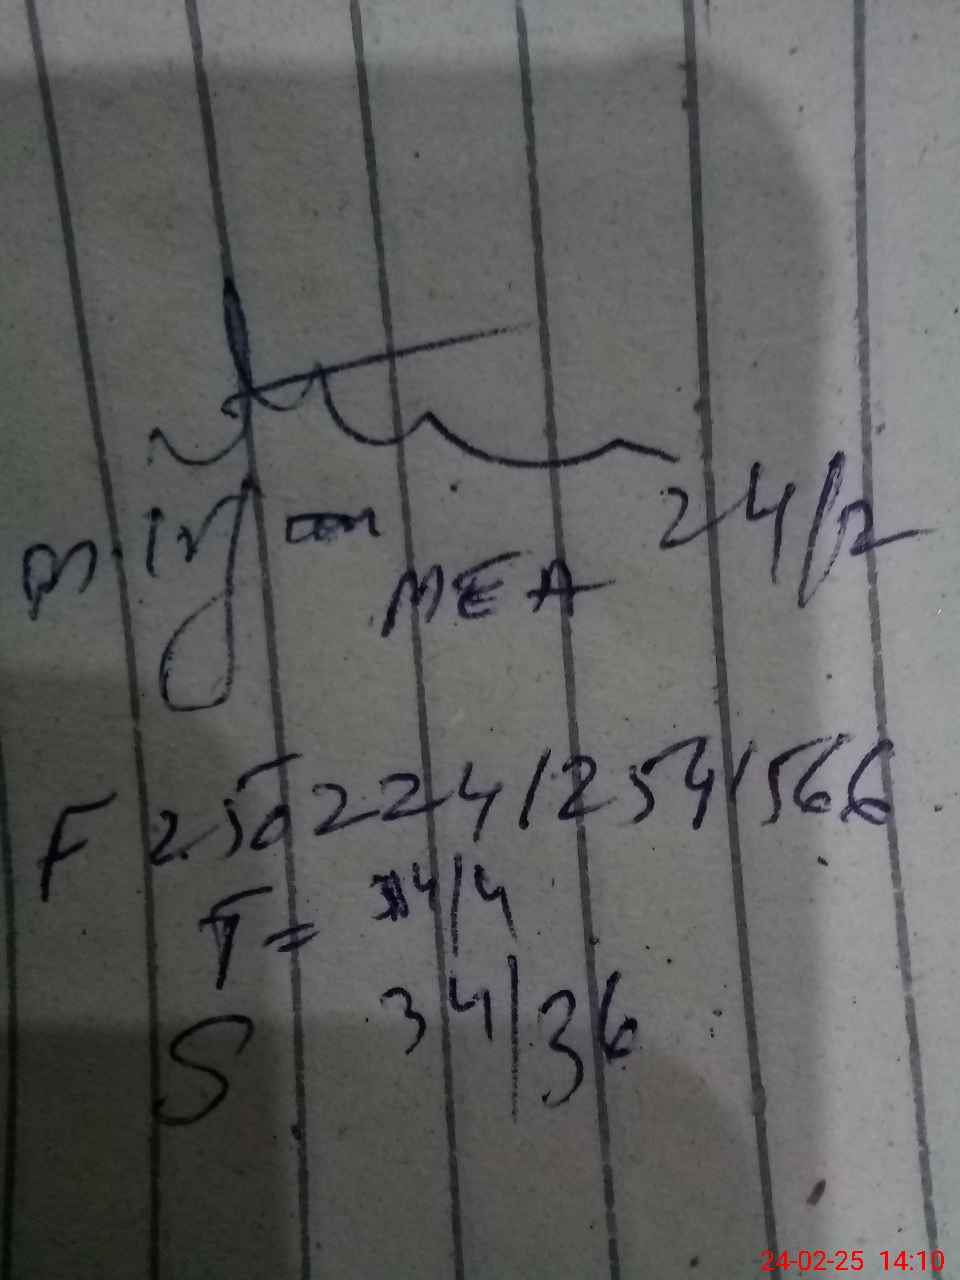 24/2
MEA
F 25022412541566
T = 4/4
S 34/36
24-02-25 14:10